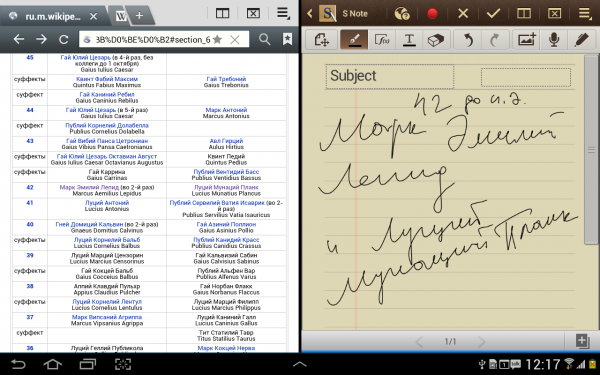 ru.m.wikipe...
S Note
3B%D0%BE%D0%B2#section_6
45 Гай Юлий Цезарь (в 4-й раз, без коллеги до 1 октября)
Gaius Iulius Caesar
суффекты Квинт Фабий Максим Гай Требоний
Quintus Fabius Maximus Gaius Trebonius
суффект Гай Каниний Ребил
Gaius Caninius Rebilus
44 Гай Юлий Цезарь (в 5-й раз) Марк Антоний
Gaius Iulius Caesar Marcus Antonius
суффект Публий Корнелий Долабелла
Publius Cornelius Dolabella
43 Гай Вибий Панса Цетрониан Авл Гирций
Gaius Vibius Pansa Caetronianus Aulus Hirtius
суффекты Гай Юлий Цезарь Октавиан Август Квинт Педий
Gaius Iulius Caesar Octavianus Augustus Quintus Pedius
суффекты Гай Каррина Публий Вентидий Басс
Gaius Carrinas Publius Ventidius Bassus
42 Марк Эмилий Лепид (во 2-й раз) Луций Мунаций Планк
Marcus Aemilius Lepidus Lucius Munatius Plancus
41 Луций Антоний Публий Сервилий Ватия Исаврик (во 2-й раз)
Lucius Antonius Publius Servilius Vatia Isauricus
40 Гней Домиций Кальвин (во 2-й раз) Гай Азиний Поллион
Gnaeus Domitius Calvinus Gaius Asinius Pollio
суффекты Луций Корнелий Бальб Публий Канидий Красс
Lucius Cornelius Balbus Publius Canidius Crassus
39 Луций Марций Цензорин Гай Кальвизий Сабин
Lucius Marcius Censorinus Gaius Calvisius Sabinus
суффекты Гай Кокцей Бальб Публий Альфен Вар
Gaius Cocceius Balbus Publius Alfenus Varus
38 Аппий Клавдий Пульхр Гай Норбан Флакк
Appius Claudius Pulcher Gaius Norbanus Flaccus
суффекты Луций Корнелий Лентул Луций Марций Филипп
Lucius Cornelius Lentulus Lucius Marcius Philippus
37 Марк Випсаний Агриппа Луций Каниний Галл
Marcus Vipsanius Agrippa Lucius Caninius Gallus
суффект Тит Статилий Тавр
Titus Statilius Taurus
36 Луций Геллий Публикола Марк Кокцей Нерва
Subject
42 до н.э.
Марк Эмилий
Лепид
и Луций
Мунаций Планк
1/1
12:17